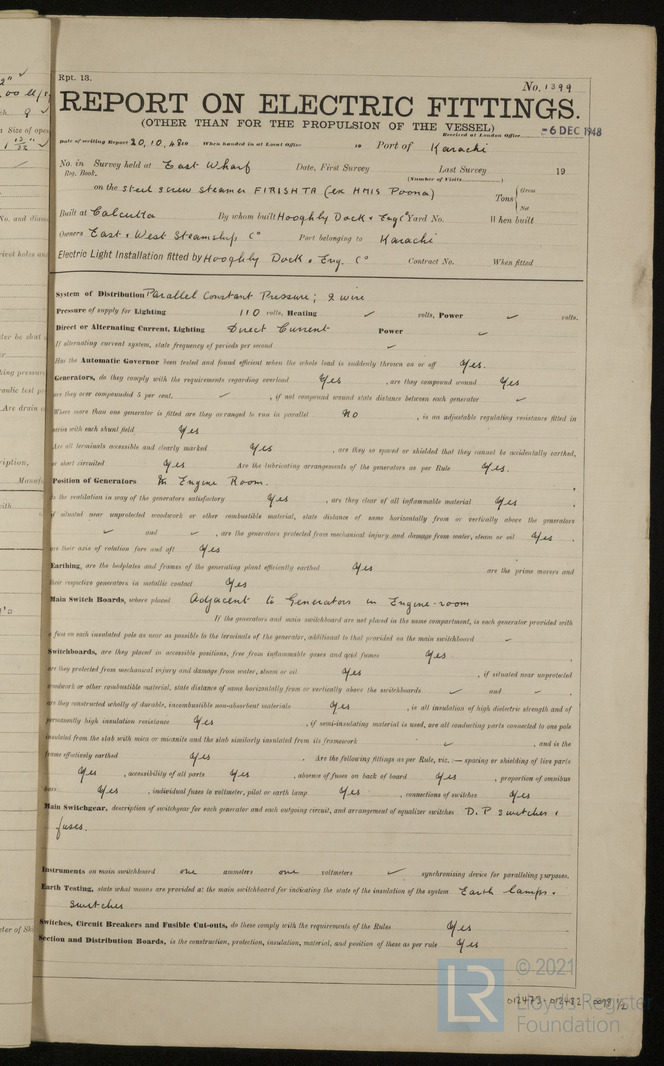 Rpt. 13.
No. 1399
REPORT ON ELECTRIC FITTINGS.
(OTHER THAN FOR THE PROPULSION OF THE VESSEL)
Received at London Office -6 DEC 1948
Date of writing Report 20.10.48 19 When handed in at Local Office 19 Port of Karachi
No. in Survey held at East Wharf Date, First Survey Last Survey 19
Reg. Book. (Number of Visits )
on the steel screw steamer FIRISHTA (ex HMIS Poona) Tons { Gross
Net
Built at Calcutta By whom built Hooghly Dock & Eng Co Yard No. When built
Owners East & West Steamship Co Port belonging to Karachi
Electric Light Installation fitted by Hooghly Dock & Eng. Co Contract No. When fitted
System of Distribution Parallel Constant Pressure; 2 wire
Pressure of supply for Lighting 110 volts, Heating ✓ volts, Power ✓ volts.
Direct or Alternating Current, Lighting Direct Current Power ✓
If alternating current system, state frequency of periods per second ✓
Has the Automatic Governor been tested and found efficient when the whole load is suddenly thrown on or off Yes.
Generators, do they comply with the requirements regarding overload Yes , are they compound wound Yes
are they over compounded 5 per cent. ✓ , if not compound wound state distance between each generator ✓
Where more than one generator is fitted are they arranged to run in parallel No , is an adjustable regulating resistance fitted in
series with each shunt field Yes
Are all terminals accessible and clearly marked Yes , are they so spaced or shielded that they cannot be accidentally earthed,
or short circuited Yes Are the lubricating arrangements of the generators as per Rule Yes.
Position of Generators In Engine Room.
is the ventilation in way of the generators satisfactory Yes , are they clear of all inflammable material Yes ,
if situated near unprotected woodwork or other combustible material, state distance of same horizontally from or vertically above the generators
✓ and ✓ , are the generators protected from mechanical injury and damage from water, steam or oil Yes ,
are their axis of rotation fore and aft Yes
Earthing, are the bedplates and frames of the generating plant efficiently earthed Yes are the prime movers and
their respective generators in metallic contact Yes
Main Switch Boards, where placed Adjacent to Generators in Engine-room
If the generators and main switchboard are not placed in the same compartment, is each generator provided with
a fuse on each insulated pole as near as possible to the terminals of the generator, additional to that provided on the main switchboard ✓
Switchboards, are they placed in accessible positions, free from inflammable gases and acid fumes Yes ,
are they protected from mechanical injury and damage from water, steam or oil Yes , if situated near unprotected
woodwork or other combustible material, state distance of same horizontally from or vertically above the switchboards ✓ and ✓ ,
are they constructed wholly of durable, incombustible non-absorbent materials Yes , is all insulation of high dielectric strength and of
permanently high insulation resistance Yes , if semi-insulating material is used, are all conducting parts connected to one pole
insulated from the slab with mica or micanite and the slab similarly insulated from its framework ✓ , and is the
frame effectively earthed Yes . Are the following fittings as per Rule, viz.:— spacing or shielding of live parts
Yes , accessibility of all parts Yes , absence of fuses on back of board Yes , proportion of omnibus
bars Yes , individual fuses to voltmeter, pilot or earth lamp Yes , connections of switches Yes
Main Switchgear, description of switchgear for each generator and each outgoing circuit, and arrangement of equalizer switches D.P switches &
fuses.
Instruments on main switchboard one ammeters one voltmeters ✓ synchronising device for paralleling purposes.
Earth Testing, state what means are provided at the main switchboard for indicating the state of the insulation of the system Earth lamps &
switches
Switches, Circuit Breakers and Fusible Cut-outs, do these comply with the requirements of the Rules Yes
Section and Distribution Boards, is the construction, protection, insulation, material, and position of these as per rule Yes
LR
© 2021
Lloyd's Register
Foundation
012473-012482-0098 1/2